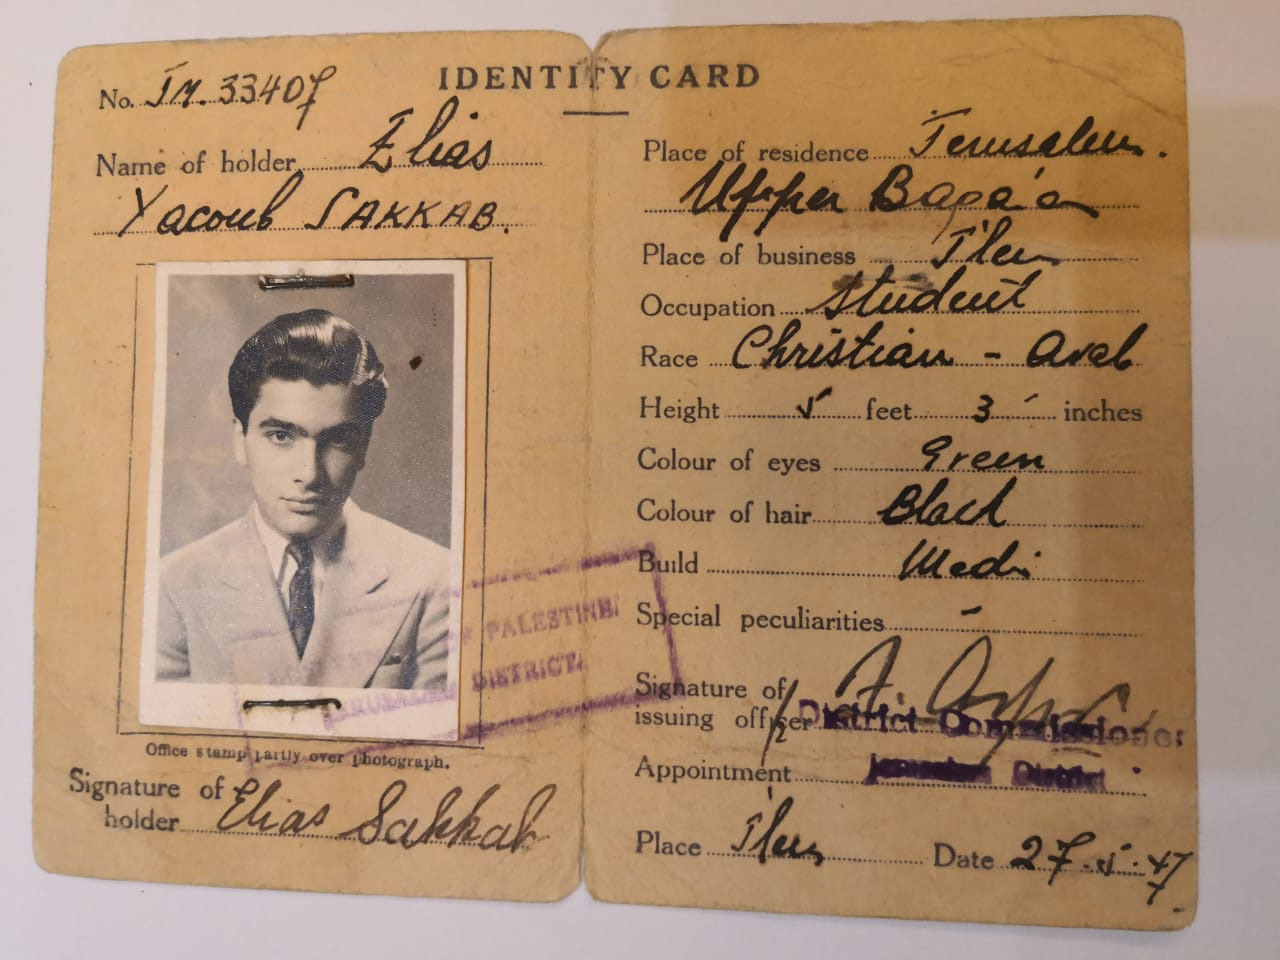 IDENTITY CARD
No. JM. 33407
Name of holder Elias
Yacoub SAKKAB.
PALESTINE
DISTRICT.
Office stamp partly over photograph.
Signature of
holder Elias Sakkab
Place of residence Jerusalem.
Upper Baqa'a
Place of business J'lem
Occupation Student
Race Christian - Arab
Height 5 feet 3 inches
Colour of eyes Green
Colour of hair Black
Build Medi
Special peculiarities -
Signature of
issuing officer District Commissioner
Appointment Jerusalem District
Place J'lem Date 27.5.47